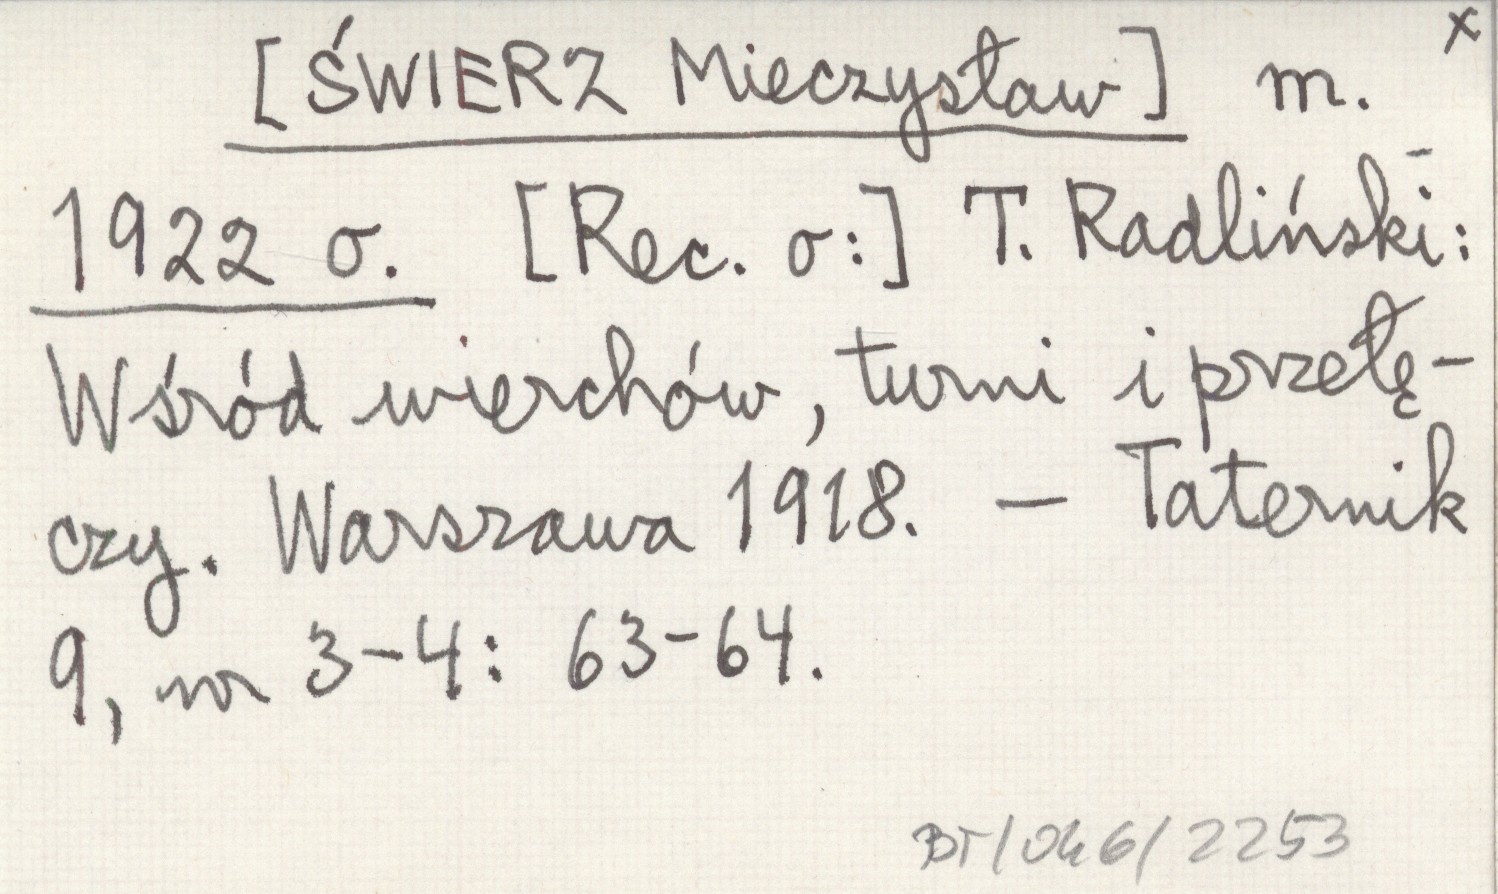 x
[ŚWIERZ Mieczysław] m.
1922 o. [Rec. o:] T. Radliński:
Wśród wierchów, turni i przełę-
czy. Warszawa 1918. — Taternik
9, nr 3-4: 63-64.
BT/046/2253